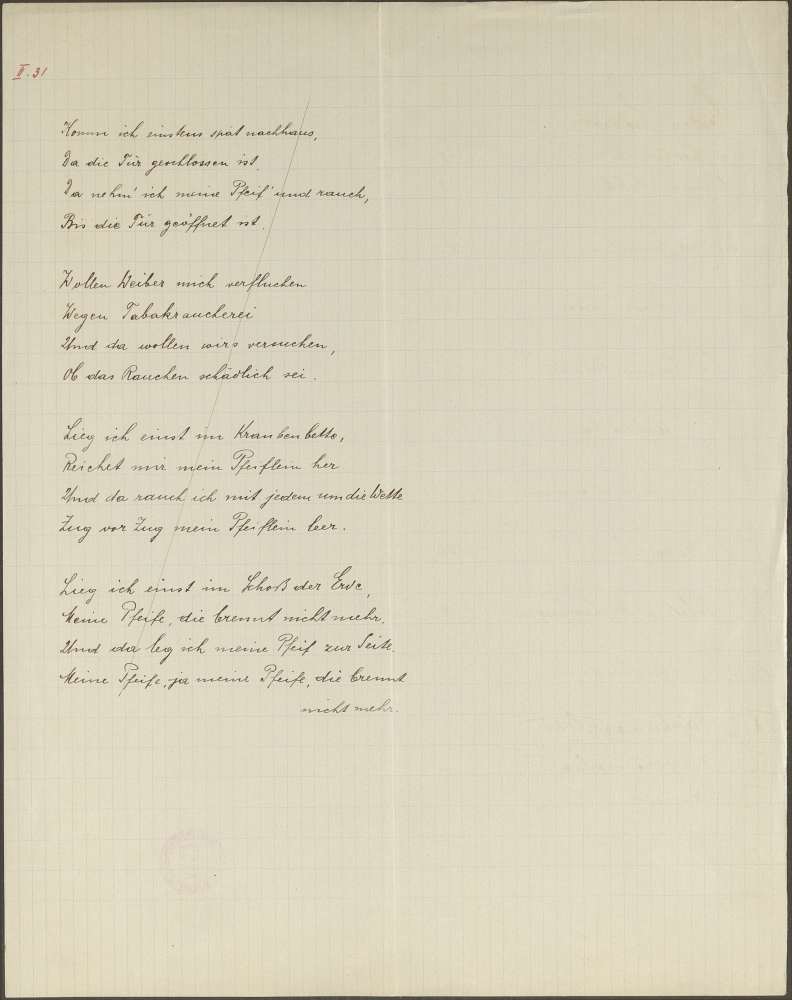 II. 31
Komm ich einstens spat nachhaus,
Da die Tür geschlossen ist.
Da nehm' ich meine Pfeif' und rauch,
Bis die Tür geöffnet ist.
Wollen Weiber mich verfluchen
Wegen Tabakraucherei
Und da wollen wirs versuchen,
Ob das Rauchen schädlich sei.
Lieg ich einst im Krankenbette,
Reichet mir mein Pfeiflein her
Und da rauch ich mit jedem um die Wette
Zug vor Zug mein Pfeiflein leer.
Lieg ich einst im Schoß der Erde,
Meine Pfeife, die brennt nicht mehr.
Und da leg ich meine Pfeif zur Seite.
Meine Pfeife, ja meine Pfeife, die brennt
nicht mehr.